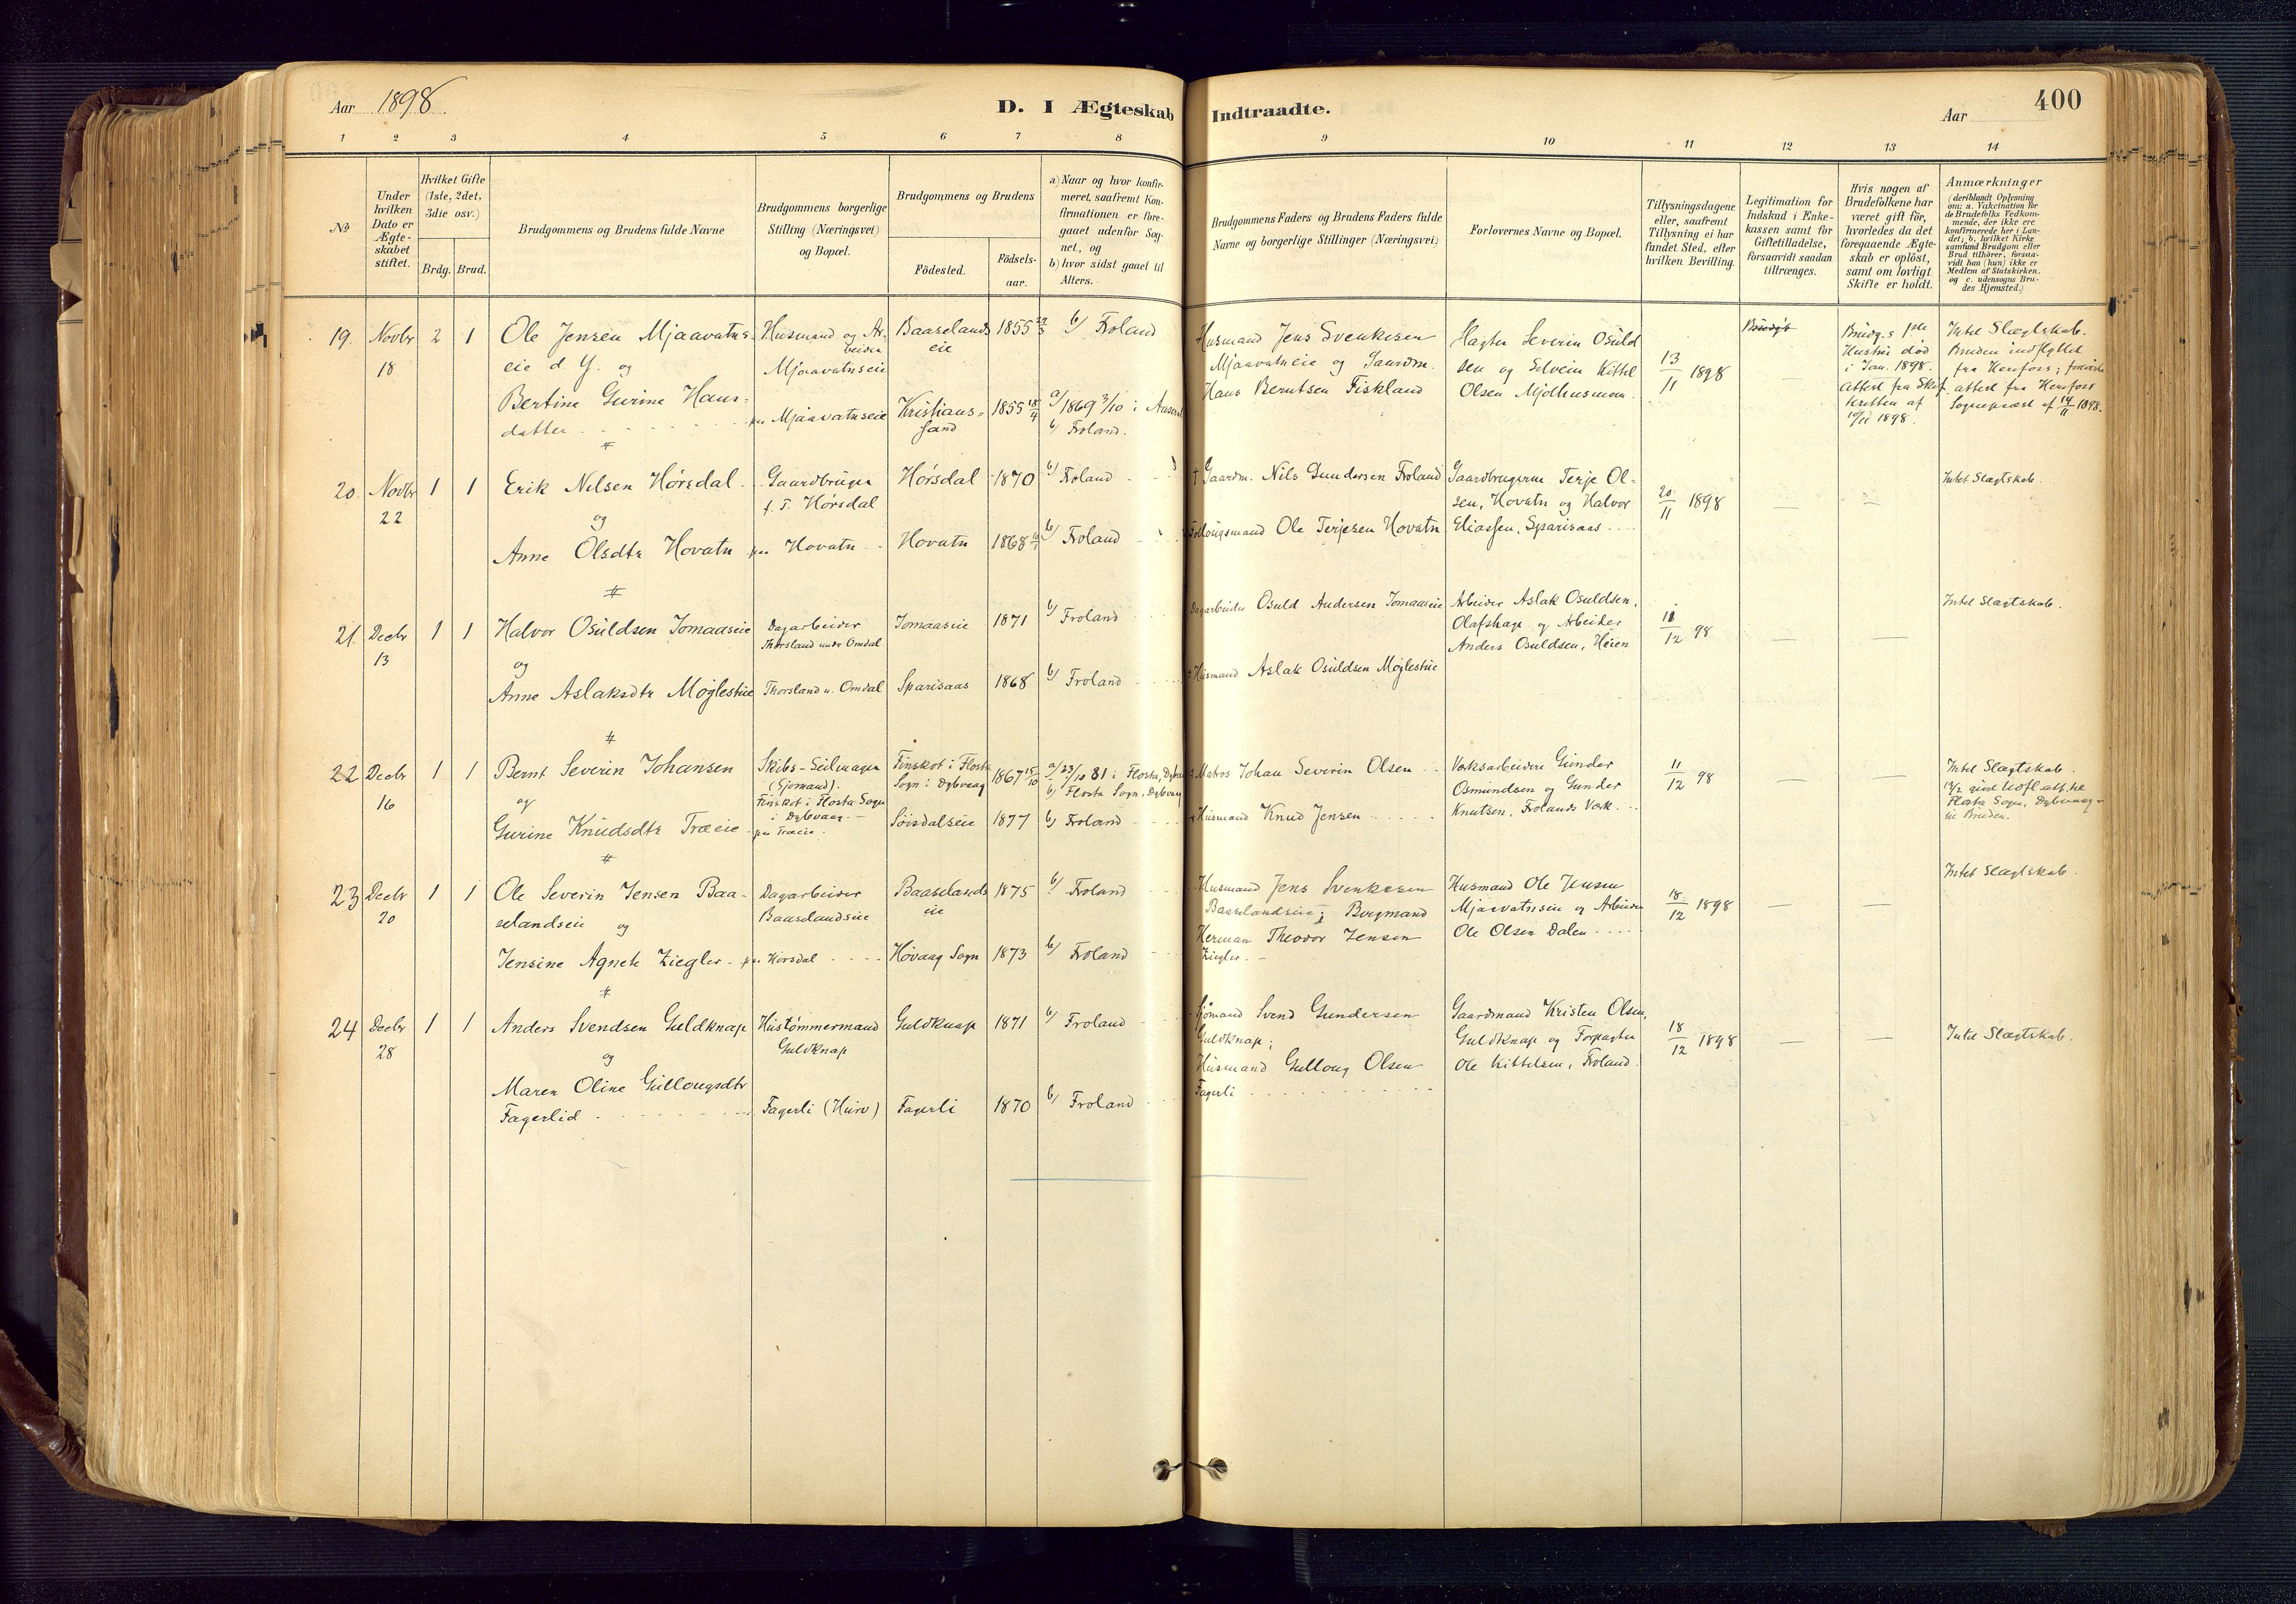 Aar 1898
D. I Ægteskab Indtraadte.
Aar
400
1 2 3 4 5 6 7 8 9 10 11 12 13 14
No
Under hvilken Dato er Ægteskabet stiftet.
Hvilket Gifte (1ste, 2det, 3die osv.)
Brdg. Brud.
Brudgommens og Brudens fulde Navne
Brudgommens borgerlige Stilling (Næringsvei) og Bopæl.
Brudgommens og Brudens
Födested.
Födselsaar.
a) Naar og hvor konfirmeret, saafremt Konfirmationen er foregaaet udenfor Sognet, og
b) hvor sidst gaaet til Alters.
Brudgommens Faders og Brudens Faders fulde Navne og borgerlige Stillinger (Næringsvei)
Forlovernes Navne og Bopæl.
Tillysningsdagene eller, saafremt Tillysning ei har fundet Sted, efter hvilken Bevilling.
Legitimation for Indskud i Enkekassen samt for Giftetilladelse, forsaavidt saadan tiltrænges.
Hvis nogen af Brudefolkene har været gift för, hvorledes da det foregaaende Ægteskab er oplöst, samt om lovligt Skifte er holdt.
Anmærkninger
(deriblandt Oplysning om: a. Vakcination for de Brudefolks Vedkommende, der ikke ere konfirmerede her i Landet; b. hvilket Kirkesamfund Brudgom eller Brud tilhörer, forsaavidt han (hun) ikke er Medlem af Statskirken, og c. udensogns Brudes Hjemsted.)
19. Novbr 18
2 1
Ole Jensen Mjaavatns-
eie d. Y. og
Husmand og Arbeider
Mjaavatnseie
Baaselands
eie
1855
b/ Froland
Bertine Gurine Hans-
datter
Mjaavatnseie
Kristians-
sand
1855 18/4
a/ 1869 3/10 i
b/ Froland.
Husmand Jens Svenkesen
Mjaavatneie og Gaardm.
Hans Berntsen Fiskland
Severin Osuld
sen og Kittel
Olsen Mjølhusmoen
13/11 1898
Brudg.s 1ste
Hustru død
i Jan. 1898.
Attest fra Skif
teretten af
10/11 1898.
Intet Slægtskab.
Bruden indflyttet
fra Herefoss;
attest fra Herefoss
Sognepræst af 14/11 1898.
20. Novbr 22
1 1
Erik Nilsen Hørsdal
og
Gaardbruger
f. T. Hørsdal
Hørsdal
1870
b/ Froland
Anne Olsdtr Hovatn
Hovatn
Hovatn
1868
b/ Froland
† Gaardm. Nils Gundersen Froland
Ole Terjesen Hovatn
Gaardbrugerne Terje Ol-
sen, Hovatn og Halvor
Eliassen, Sparisaas
20/11 1898
Intet Slægtskab.
21. Decbr 13
1 1
Halvor Osuldsen Tomaaseie
og
Dagarbeider
Thorsland under Omdal
Tomaaseie
1871
b/ Froland
Anne Aslaksdtr Møglestue
Thorsland u. Omdal
Sparisaas
1868
b/ Froland
Dagarbeider Osuld Andersen Tomaaseie
Husmand Aslak Osuldsen Møglestue
Arbeider Aslak Osuldsen,
Olafshage og Arbeider
Anders Osuldsen, Heien
11/12 98
Intet Slægtskab.
22 Decbr 16
1 1
Bernt Severin Johansen
og
Skibs-Seilmager
(Sjømand).
Finskot i Flosta Sogn
i Dybvaag
Finskot i Flosta
Sogn i Dybvaag
1867 15/10
a/ 23/10 81 i Flosta,
b/ Flosta Sogn, Dybvaag
Gurine Knudsdtr Træeie
Træeie
Søisdalseie
1877
b/ Froland
Matros Johan Severin Olsen
Husmand Knud Jensen
Værksarbeidere Gunder
Osmundsen og Gunder
Knutsen, Frolands Værk
11/12 98
Intet Slægtskab.
Flosta Sogn, Dybvaag
Bruden.
23 Decbr 20
1 1
Ole Severin Jensen Baa-
selandseie og
Dagarbeider
Baaselandseie
Baaselands
eie
1875
b/ Froland
Jensine Agnete Ziegler
Hørsdal
Høvaag Sogn
1873
b/ Froland
Husmand Jens Svenkesen
Baaselandseie; Bergmand
Herman Theodor Jensen
Ziegler.
Husmand Ole Jensen
Mjaavatnseie og Arbeider
Ole Olsen Dalen
18/12 1898
Intet Slægtskab.
24 Decbr 28
1 1
Anders Svendsen Guldknap
og
Hustømmermand
Guldknap
Guldknap
1871
b/ Froland
Maren Oline Gullougsdtr
Fagerlid
Fagerli
Fagerli
1870
b/ Froland
Sjømand Svend Gundersen
Guldknap;
Husmand Gulloug Olsen
Fagerli
Gaardmand Kristen Olsen,
Guldknap og Forpagter
Ole Kittelsen, Froland.
18/12 1898
Intet Slægtskab.